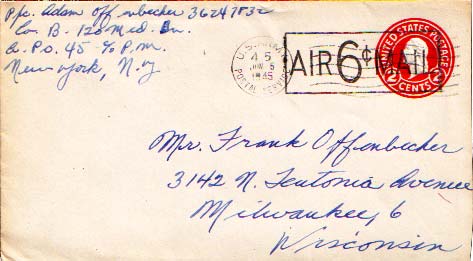 Pfc. Adam Offenbecker 36247832
Co. B. 120 Med. Bn.
A.P.O. 45 % P.M.
New York, N.Y
U.S. ARMY
45
5
1945
POSTAL SERVICE
AIR 6¢ MAIL
UNITED STATES
2 2
CENTS
Mr. Frank Offenbecker
3142 N. Teutonia Avenue
Milwaukee, 6
Wisconsin